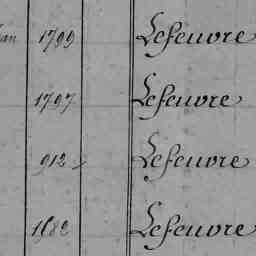 1799 Lefeuvre
1797 Lefeuvre
912 Lefeuvre
1682 Lefeuvre